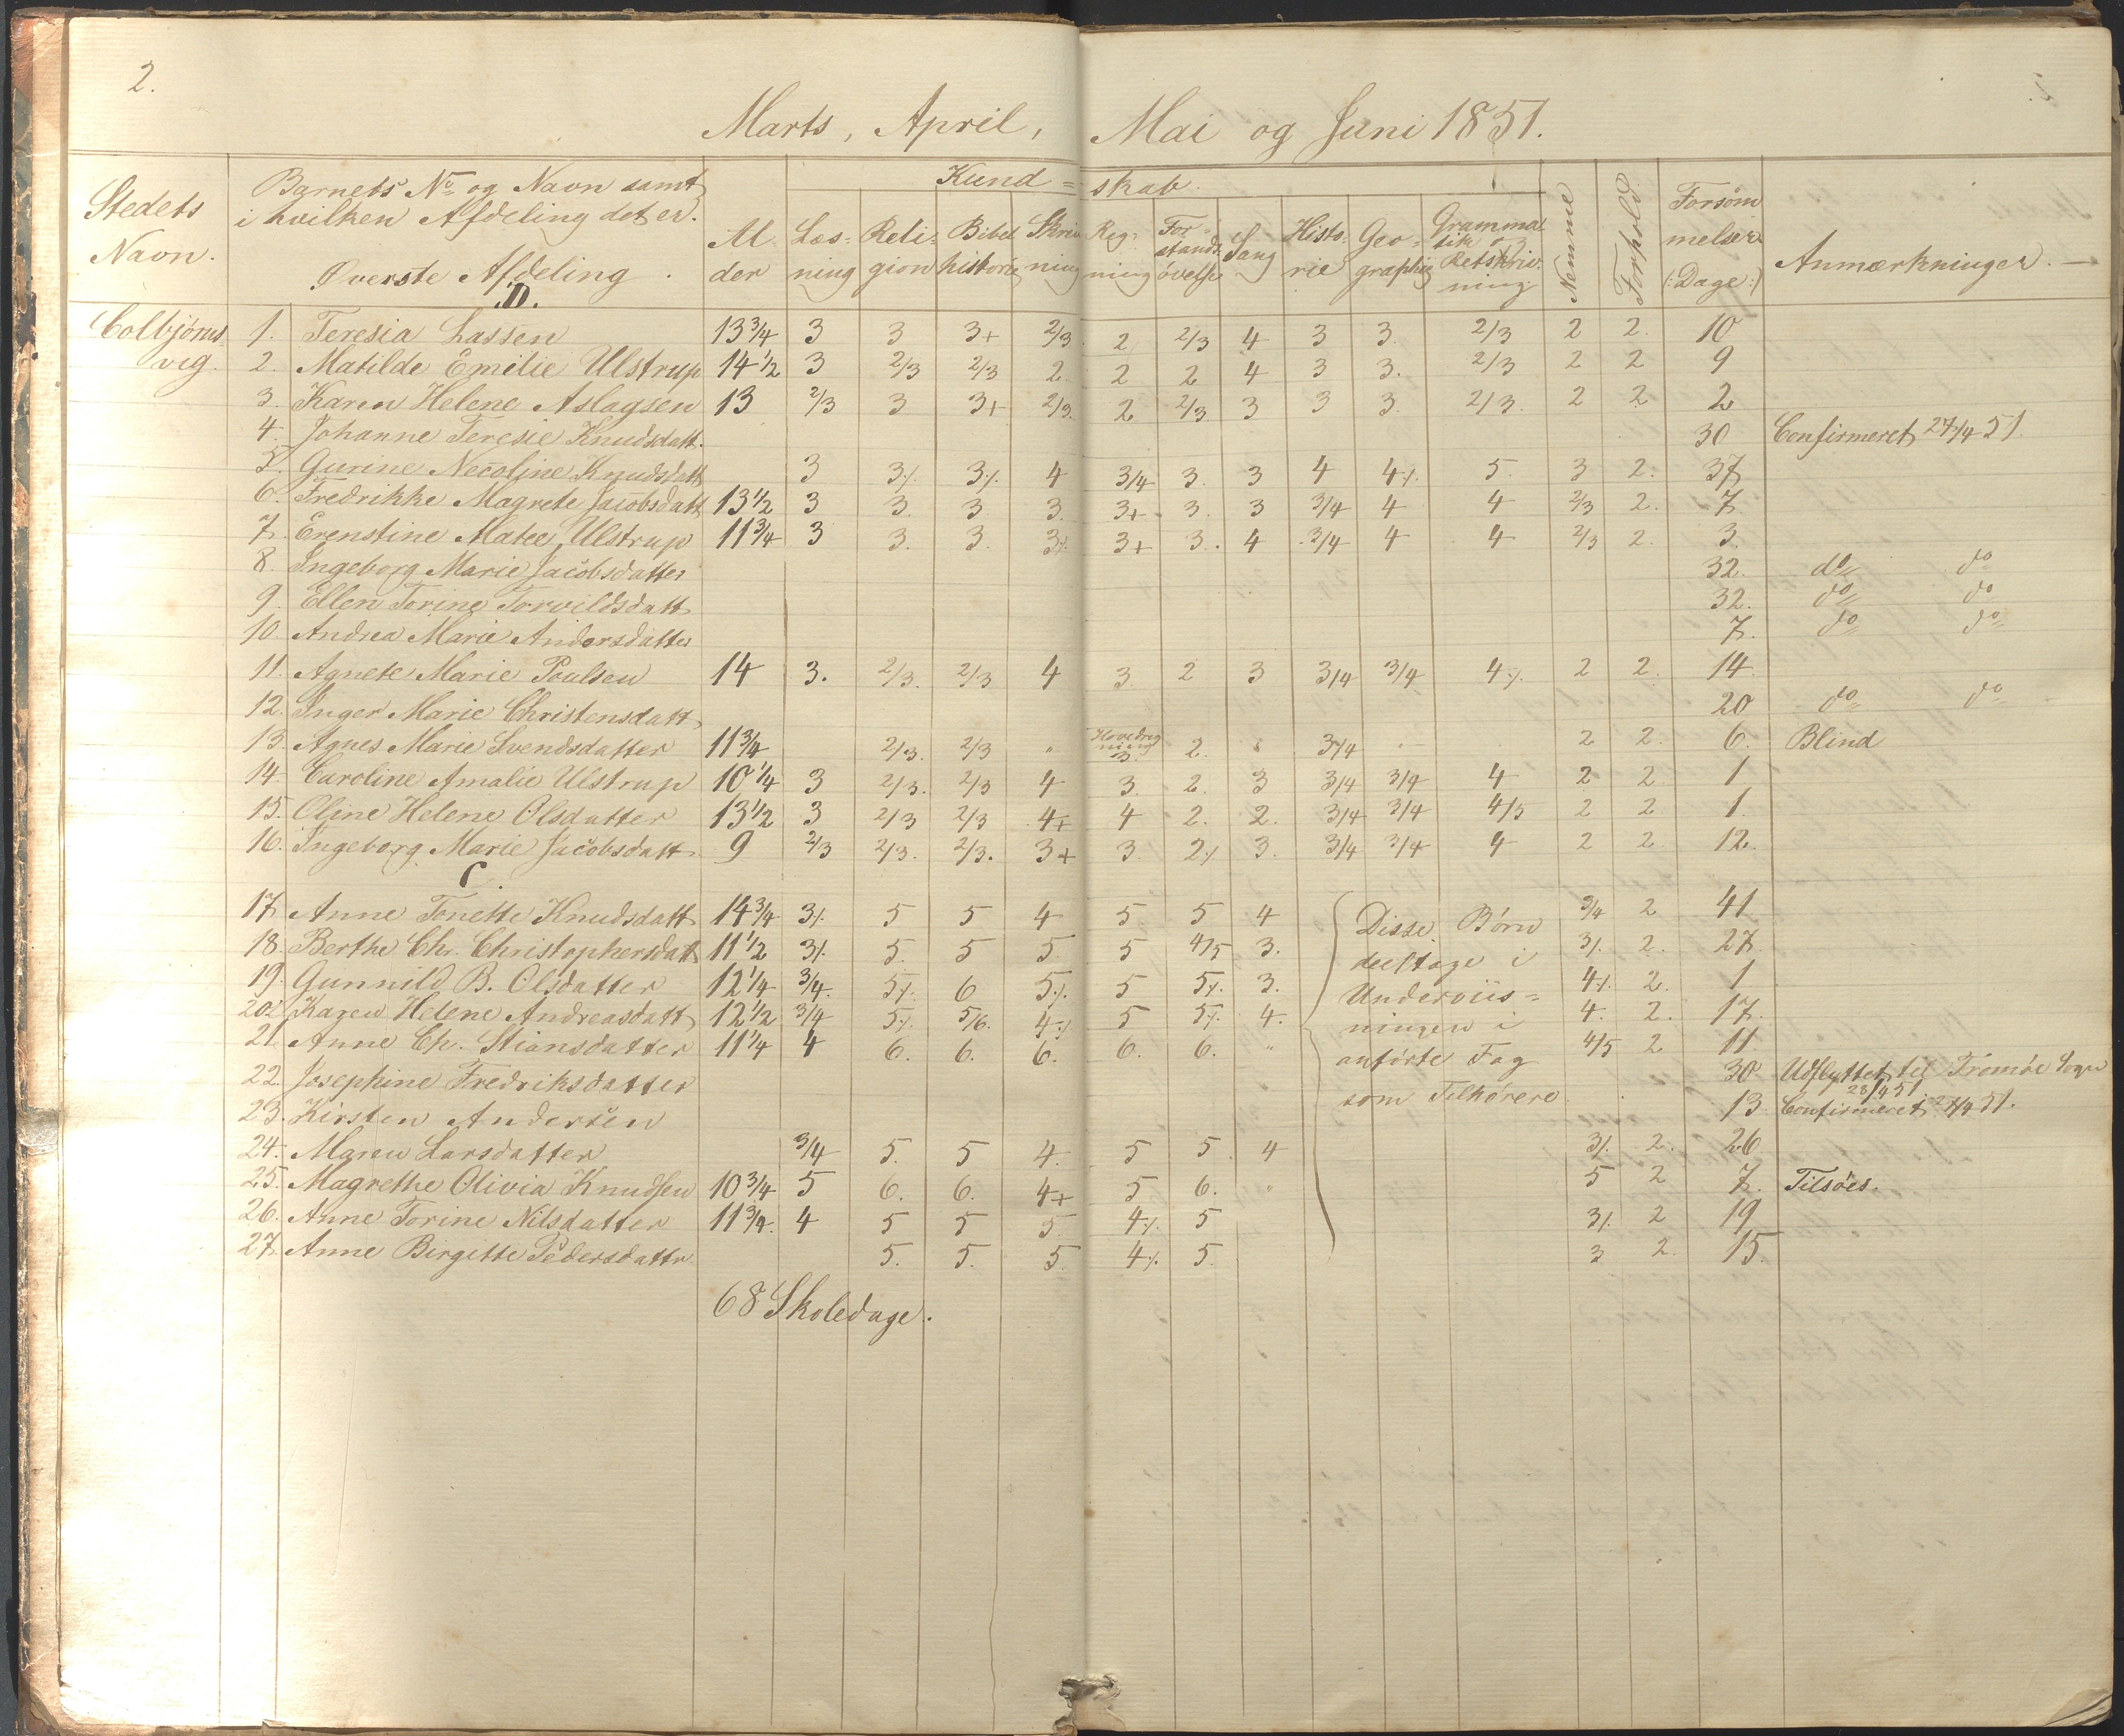 2.
Marts, April, Mai og Juni 1851.
Stedets Navn.
Barnets No og Navn samt i hvilken Afdeling det er.
Øverste Afdeling.
D.
Al- der
Kund = skab.
Læs- ning
Reli- gion
Bibel historie
Skriv ning
Reg- ning
For- stands øvelse
Sang
Histo- rie
Geo- graphie
Gramma- tik og Retskriv- ning
Nemme
Forhold.
Forsøm melser (:Dage:)
Anmærkninger.
Colbjørns- vig. 1. Teresia Lassen 13 3/4 3 3 3+ 2/3 2 2/3 4 3 3. 2/3 2 2. 10
2. Matilde Emilie Ulstrup 14 1/2 3 2/3 2/3 2. 2 2 4 3 3. 2/3 2 2 9
3. Karen Helene Aslagsen 13 2/3 3 3+ 2/3. 2 2/3 3 3 3. 2/3. 2 2 2
4. Johanne Teresie Knudsdatt. 30 Confirmeret 27/4 51.
5. Gurine Nicoline Knudsdatt 3 3⁒ 3⁒ 4 3/4 3. 3 4 4⁒ 5. 3 2. 37
6. Fredrikke Magrete Jacobsdatt 13 1/2 3 3. 3 3. 3+ 3. 3 3/4 4 4 2/3 2. 7.
7. Erenstine Matee Ulstrup 11 3/4 3 3. 3. 3⁒ 3+ 3. 4 3/4 4 4 2/3 2. 3.
8. Ingeborg Marie Jacobsdatter 32. do do
9. Ellen Torine Torvildsdatt 32. do do
10. Andrea Marie Andersdatter 7. do do
11. Agnete Marie Poulsen 14 3. 2/3. 2/3 4 3. 2 3 3/4 3/4 4⁒ 2 2. 14.
12. Inger Marie Christensdatt 20 do do
13. Agnes Marie Svendsdatter 11 3/4 2/3. 2/3 " Hovedreg ning 3. 2. " 3/4 2 2. 6. Blind
14. Caroline Amalie Ulstrup 10 1/4 3 2/3. 2/3 4 3. 2. 3 3/4 3/4 4 2 2 1
15. Oline Helene Olsdatter 13 1/2 3 2/3 2/3 4+ 4 2. 2. 3/4 3/4 4/5 2 2 1.
16. Ingeborg Marie Jacobsdatt. 9 2/3 2/3. 2/3. 3+ 3. 2⁒ 3. 3/4 3/4 4 2 2. 12.
C.
17. Anne Tonette Knudsdatt 14 3/4 3⁒ 5 5 4 5 5 4 3/4 2 41
18. Berthe Chr. Christophersdatt 11 1/2 3⁒ 5. 5 5. 5 4/5 3. 3⁒ 2. 27.
19. Gunnild B. Olsdatter 12 1/4 3/4. 5⁒ 6 5⁒ 5 5⁒ 3. 4⁒ 2. 1
20. Karen Helene Andreasdatt 12 1/2 3/4 5⁒ 5/6. 4⁒ 5 5⁒ 4. 4. 2. 17.
21. Anne Ch. Stiansdatter 11 1/4 4 6. 6. 6. 6. 6. " 4/5 2 11
22. Josephine Fredriksdatter 30 Udflyttet til Tromøe Sogn 28/4 51
23. Kirsten Andersen 13 Confirmeret 27/4 51.
24. Maren Larsdatter 3/4 5. 5 4. 5 5. 4 3⁒ 2. 26
25. Magrethe Olivia Knudsen 10 3/4 5 6. 6. 4+ 5 6. " 5 2 7. Tilsøes.
26. Anne Torine Nilsdatter 11 3/4. 4 5 5 5. 4⁒ 5 3⁒ 2 19
27. Anne Birgitte Pedersdattr. 5. 5. 5. 4⁒ 5. 3 2. 15.
Disse Børn
deeltage i
Underviis-
ningen i
anførte Fag
som Tilhørere
68 Skoledage.